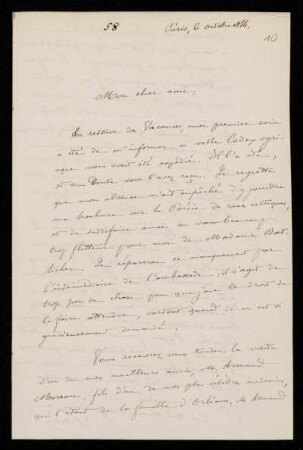 58
Paris, 6 octobre
10
Mon cher ami,
Au retour des vacances, mon premier soin
a été de m'informer si votre Codex syri-
aque vous avait été expédié. Il l'a été,
et sans doute vous l'avez reçu. Je regrette
que mon absence m'ait empêché d'y joindre
ma brochure sur la Poésie des races celtiques,
et de satisfaire ainsi au vœu beaucoup
trop flatteur pour moi de Madame
Je réparerai ce manquement par
l'intermédiaire de l'ambassade; il s'agit de
trop peu de chose pour que j'aie le droit de
le faire attendre, surtout quand il m'est si
gracieusement demandé.
Vous recevrez sans tarder la visite
d'un de mes meilleurs amis, M. Armand
Moreau, fils d'un de nos plus célèbres médecins,
qui l'était de la famille d'Orléans. M. Armand